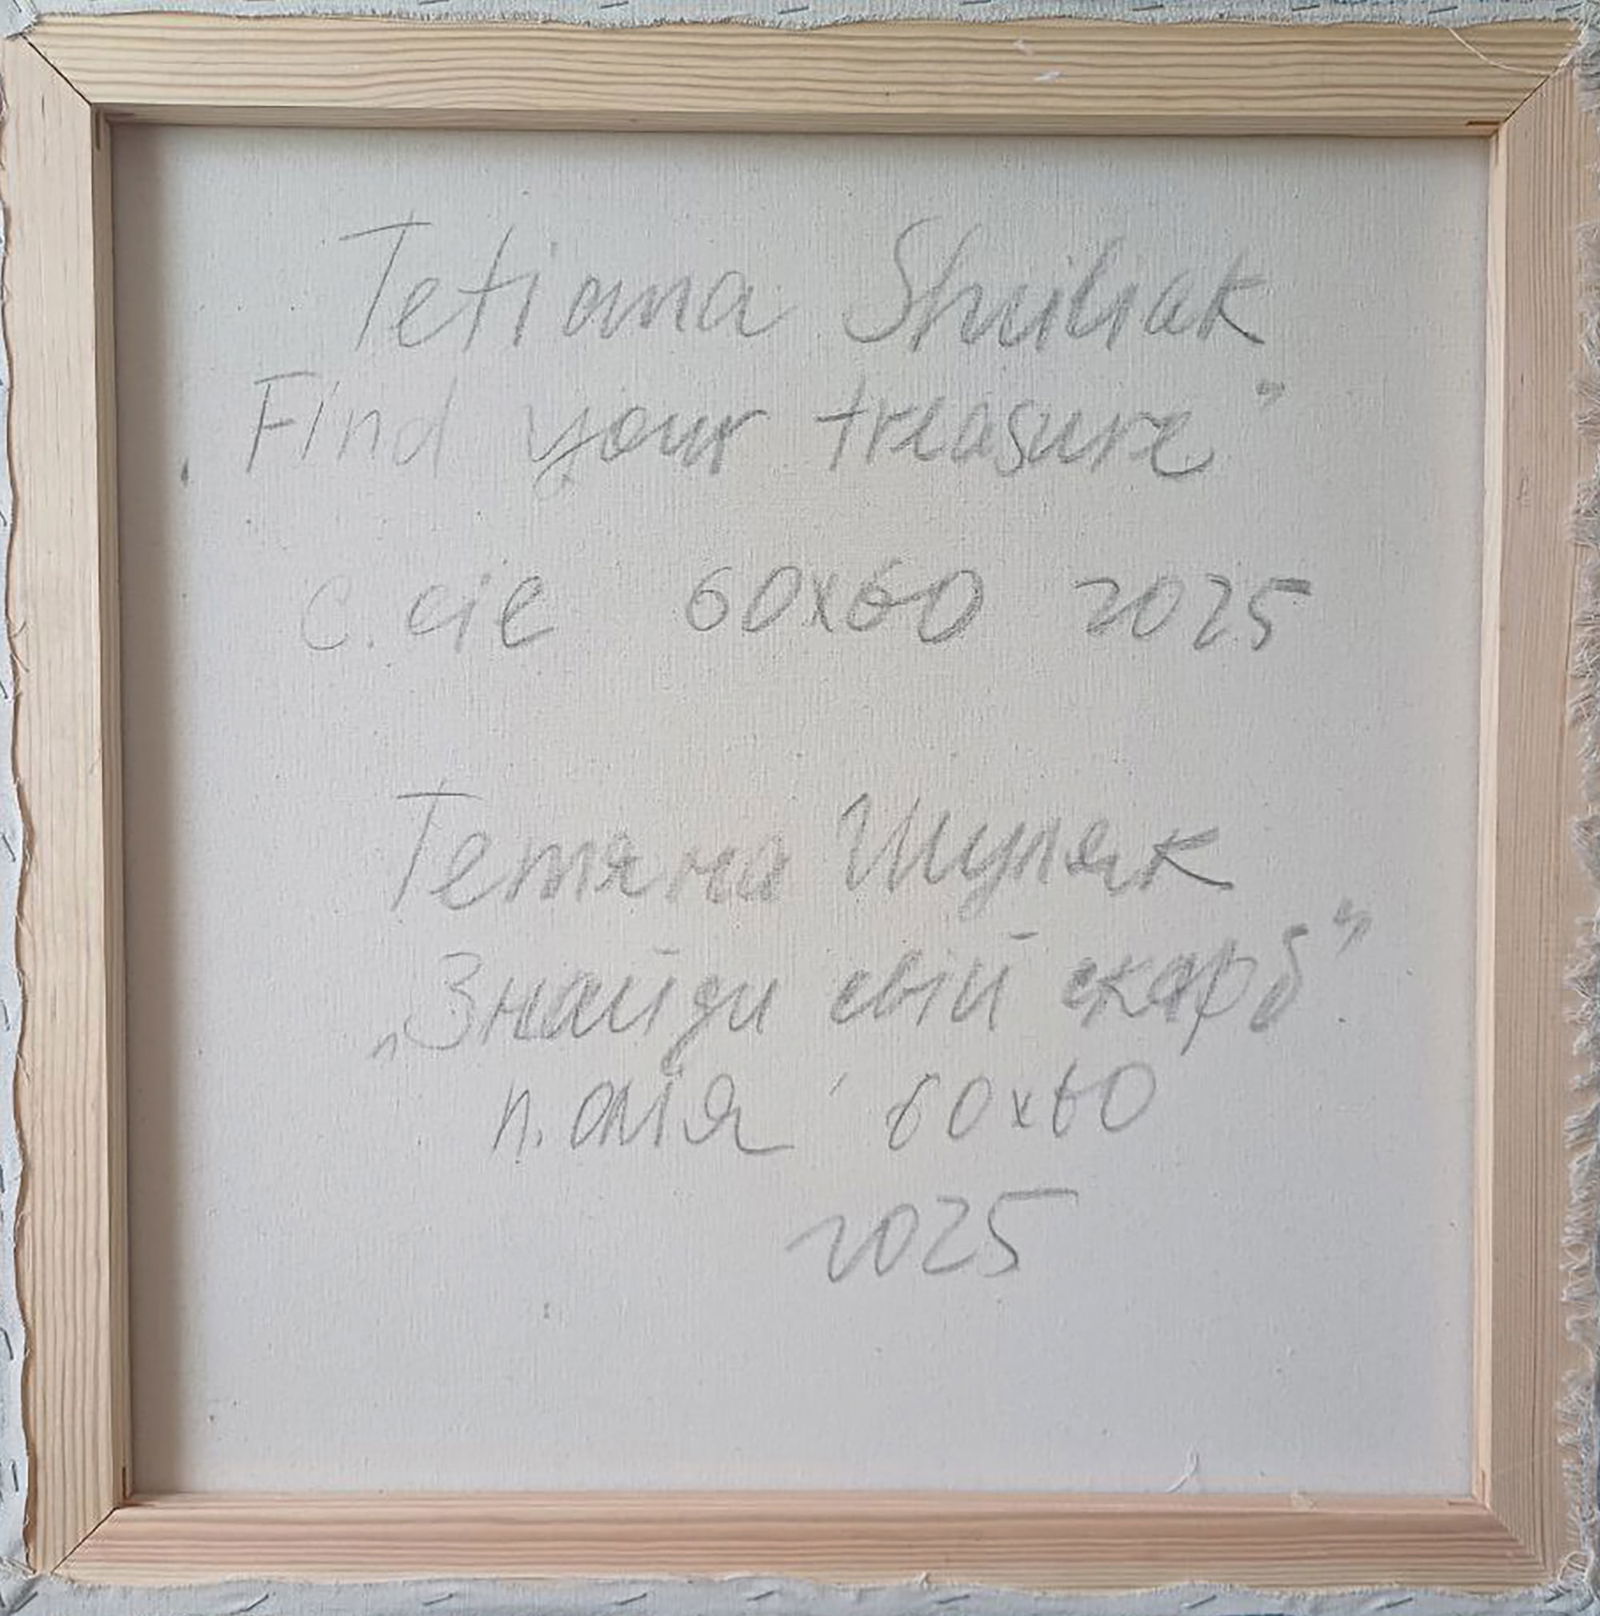 Tetiana Shuliak
„Find your treasure”
c. oil 60x60 2025
Тетяна Шуляк
„Знайди свій скарб”.
п. олія 60x60
2025